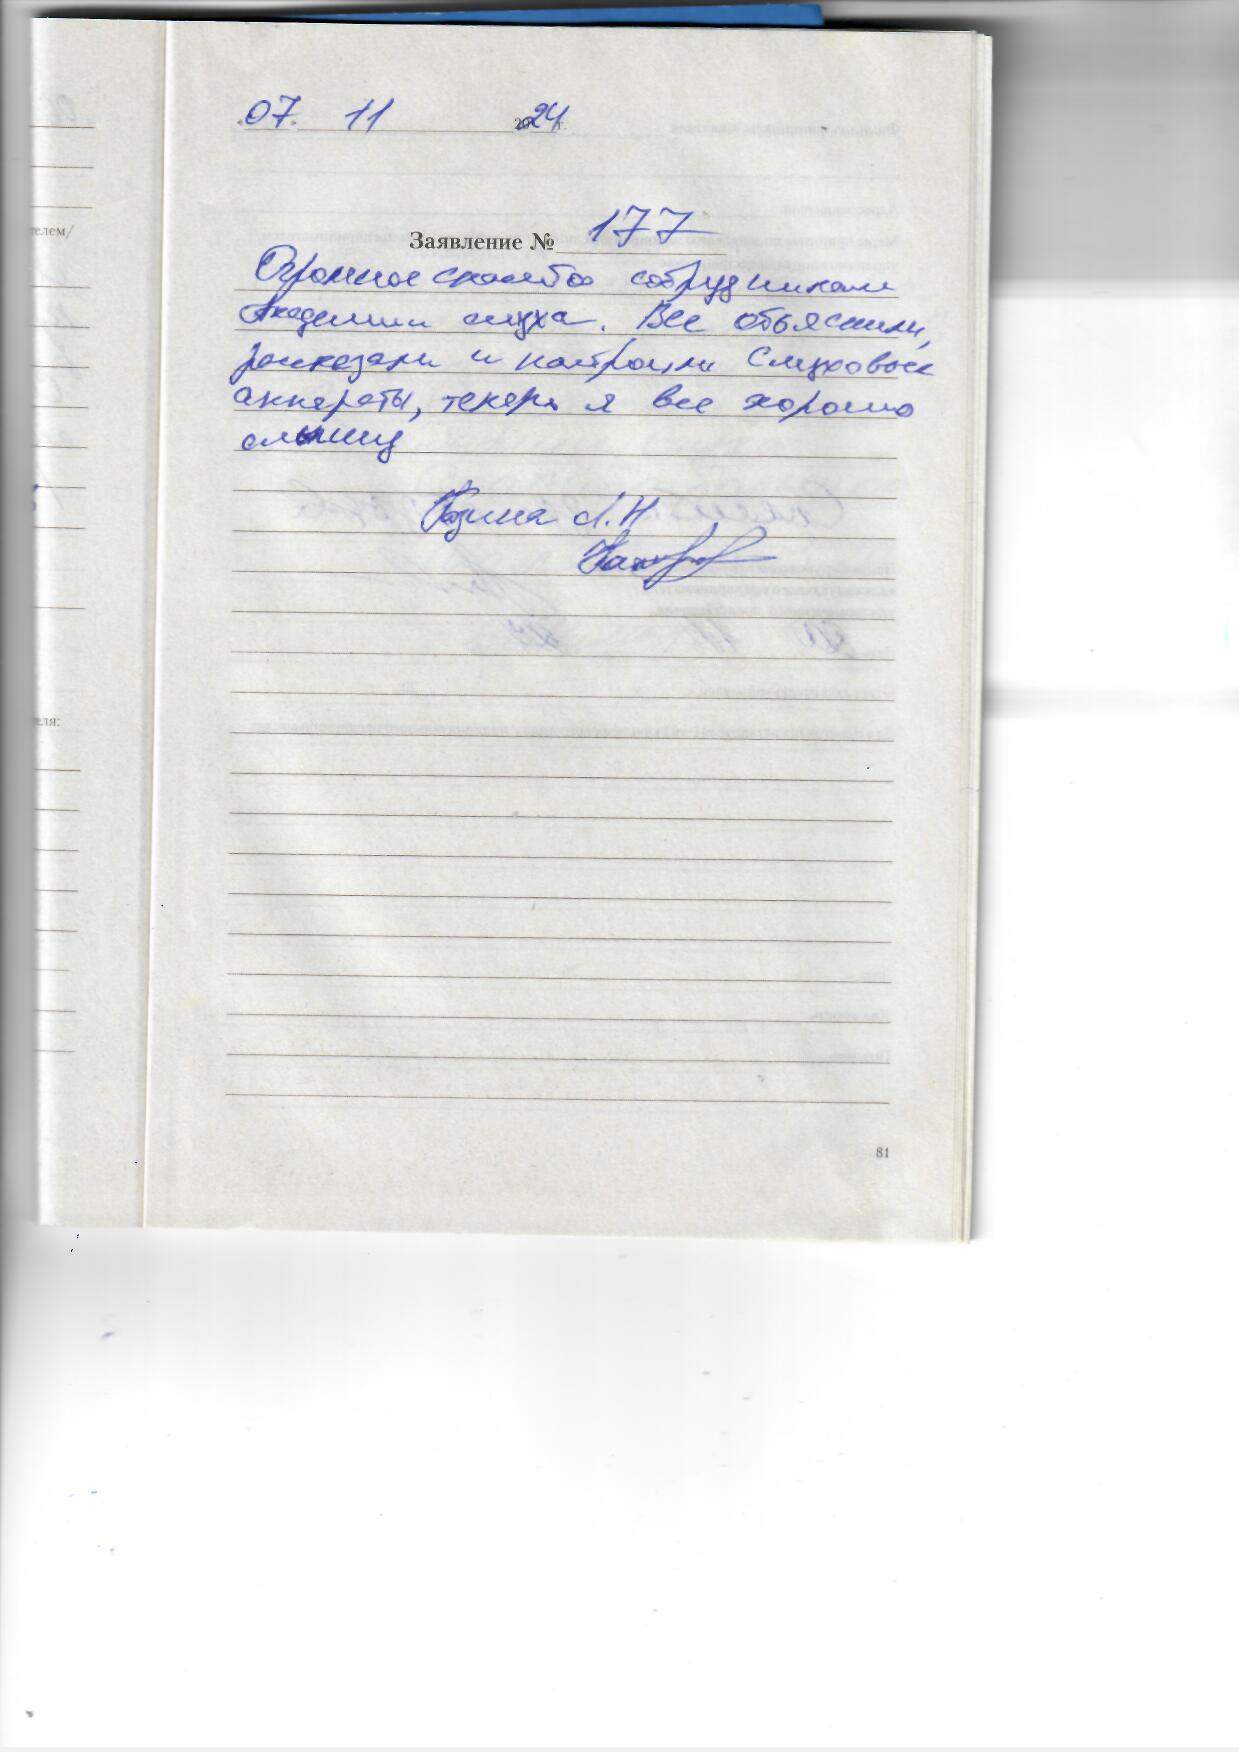 07. 11 2024 г.
Заявление № 177
Огромное спасибо сотрудникам
Академии слуха. Все объяснили,
рассказали и настроили Слуховые
аппараты, теперь я все хорошо
слышу
Л.Н
телем/
еля:
81